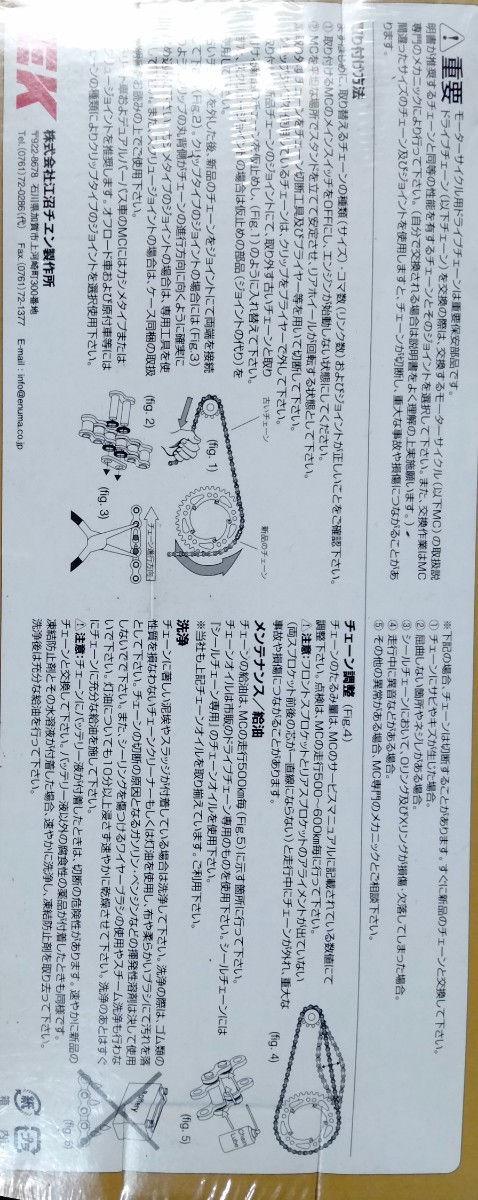 ⚠ 重要
モーターサイクル用ドライブチェーンは重要保安部品です。
ドライブチェーン(以下チェーン)を交換の際は、交換するモーターサイクル(以下MC)の取扱説
明書が推奨するチェーンと同等の性能を有するチェーンとそのジョイントを選択して下さい。また、交換作業はMC
専門のメカニックにより行って下さい。(自分で交換される場合は説明書をよく理解の上実施願います。)
間違ったサイズのチェーン及びジョイントを使用しますと、チェーンが切断し、重大な事故や損傷につながることがあ
ります。
取り付け方法
まずはじめに、取り替えるチェーンの種類(サイズ)・コマ数(リンク数)およびジョイントが正しいことをご確認下さい。
①取り付けるMCのメインスイッチをOFFにし、エンジンが始動しない状態にしてください。
②MCを平坦な場所でスタンドを立てて安定させ、リアホイールが回転する状態として下さい。
チェーン切断工具及びプライヤー等を用いて切断して下さい。
チェーンは、クリップをプライヤーで外して下さい。
新品チェーンのジョイントにて、取り外す古いチェーンと取り
チェーンを仮止めし、(Fig.1)のように入れ替えて下さい。
ジョイントの場合は仮止めの部品(ジョイントの代り)を
チェーンを外した後、新品のチェーンをジョイントにて両端を接続
て下さい(Fig.2)。クリップタイプのジョイントの場合には(Fig.3)
ようにクリップの丸背側がチェーンの進行方向に向くように確実に
メタイプのジョイントの場合は、専用工具を使
また、スクリュージョイントの場合は、ケース同梱の取扱
お読みの上でご使用下さい。
車およびデュアルパーパス車のMCにはカシメタイプまたは
リュージョイントを推奨します。オフロード車および原付車等には
の種類によりクリップタイプのジョイントを選択使用下さい。
古いチェーン
新品のチェーン
(fig. 1)
(fig. 2)
(fig. 3)
チェーン進行方向
EK
株式会社江沼チヱン製作所
〒922-8678 石川県加賀市上河崎町300番地
Tel.(0761)72-0286(代) Fax.(0761)72-1377 E-mail : info@enuma.co.jp
※下記の場合、チェーンは切断することがあります。すぐに新品のチェーンと交換して下さい。
①チェーンにサビやキズが生じた場合。
②屈曲しない箇所やネジレがある場合。
③シールチェーンにおいて、Oリング及びXリングが損傷・欠落してしまった場合。
④走行中に異音などがある場合。
⑤その他の異常がある場合、MC専門のメカニックとご相談下さい。
チェーン調整 (Fig.4)
チェーンのたるみ量は、MCのサービスマニュアルに記載されている数値にて
調整下さい。点検は、MCの走行500~600km毎に行って下さい。
⚠注意:フロントスプロケットとリアスプロケットのアライメントが出ていない
(両スプロケット前後の芯が一直線にならない)と走行中にチェーンが外れ、重大な
事故や損傷につながることがあります。
(fig. 4)
メンテナンス/給油
チェーンの給油は、MCの走行500km毎(Fig.5)に示す箇所に行って下さい。
チェーンオイルは市販のドライブチェーン専用のものを使用下さい。シールチェーンには
「シールチェーン専用」のチェーンオイルを使用下さい。
※当社も上記チェーンオイルを取り揃えています。ご利用下さい。
(fig. 5)
洗浄
チェーンに著しい泥埃やスラッジが付着している場合は洗浄して下さい。洗浄の際は、ゴム類の
性質を損なわないチェーンクリーナーもしくは灯油を使用し、布や柔らかいブラシにて汚れを落
として下さい。チェーンの切断の原因となるガソリン・ベンジンなどの揮発性溶剤は決して使用
しないで下さい。また、シーリングを傷つけるワイヤーブラシの使用やスチーム洗浄も行わな
いで下さい。灯油についても10分以上浸さず速やかに乾燥させて下さい。洗浄のあとはすぐ
にチェーンに充分な給油を施して下さい。
⚠注意:チェーンにバッテリー液が付着したときは、切断の危険性があります。速やかに新品の
チェーンと交換して下さい。バッテリー液以外の腐食性の薬品が付着したときも同様です。
凍結防止剤とその水溶液が付着した場合、速やかに洗浄し、凍結防止剤を取り去って下さい。
洗浄後は充分な給油を行って下さい。
Battery
(fig. 6)
紙
箱
プラ
内